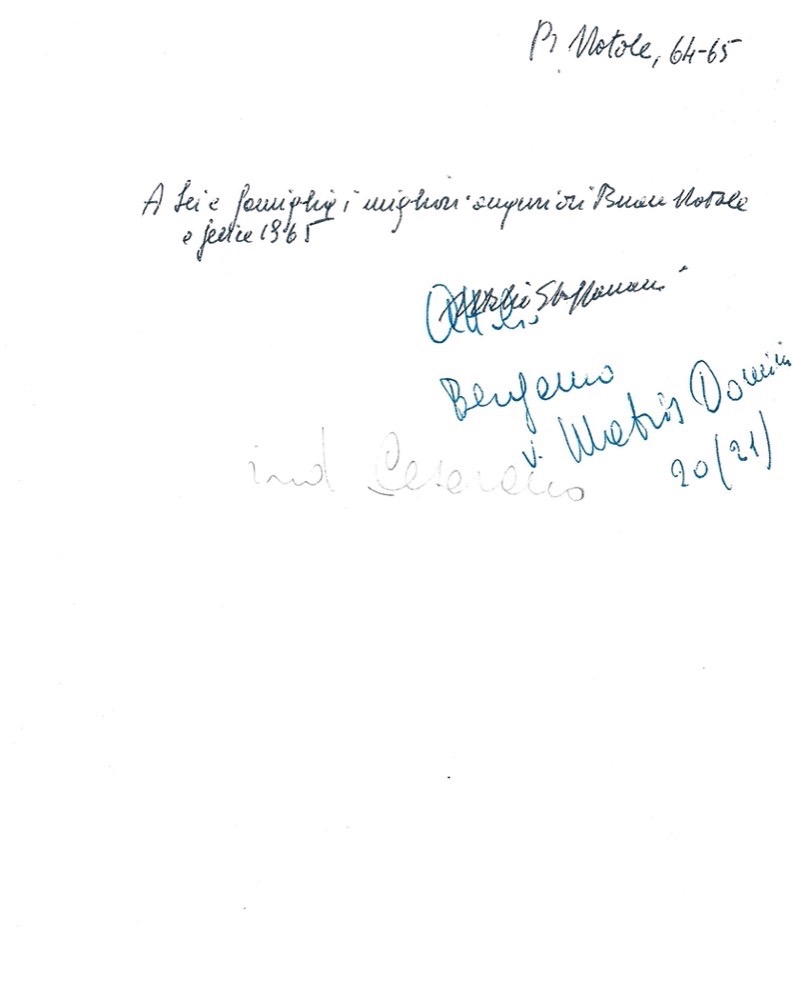 Pr Natale, 64-65
A Lei e famiglia i migliori auguri di Buon Natale
e felice 1965
Attilio Steffanoni
Attilio
Bergamo
v. Matris Domini
20 (21)
ind